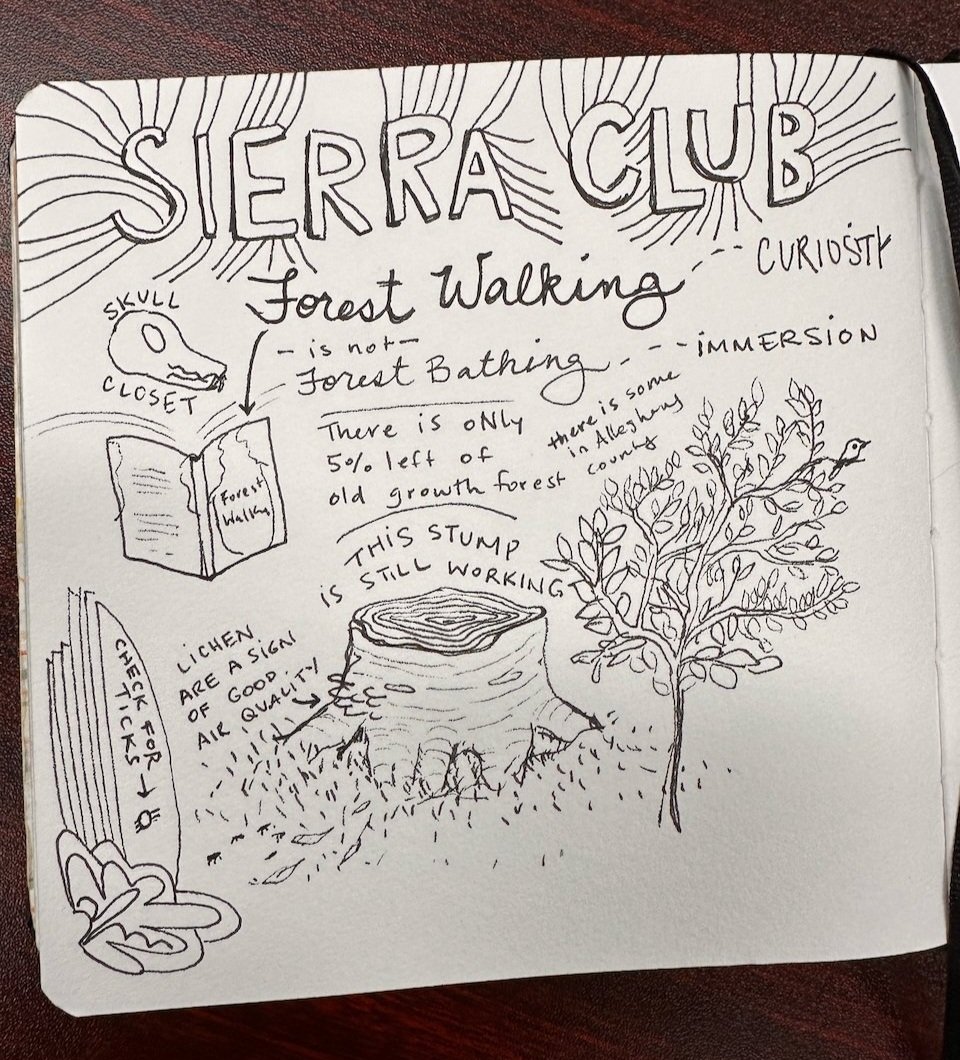 SIERRA CLUB
Forest Walking
CURIOSITY
SKULL
CLOSET
- is not -
Forest Bathing
IMMERSION
There is ONLY
5% left of
old growth forest
there is some
in Allegheny
county
Forest
Walking
THIS STUMP
IS STILL WORKING
LICHEN
ARE A SIGN
OF GOOD
AIR QUALITY
CHECK FOR
TICKS